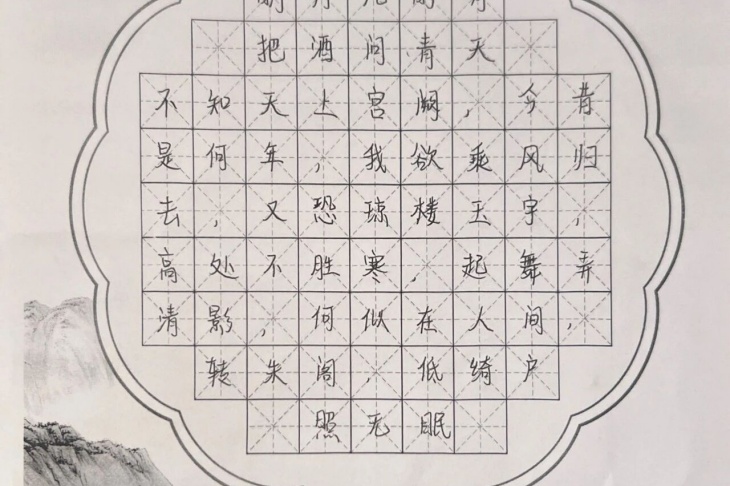 明月几时有
把酒问青天
不知天上宫阙，今昔
是何年，我欲乘风归
去，又恐琼楼玉宇，
高处不胜寒，起舞弄
清影，何似在人间，
转朱阁，低绮户
照无眠